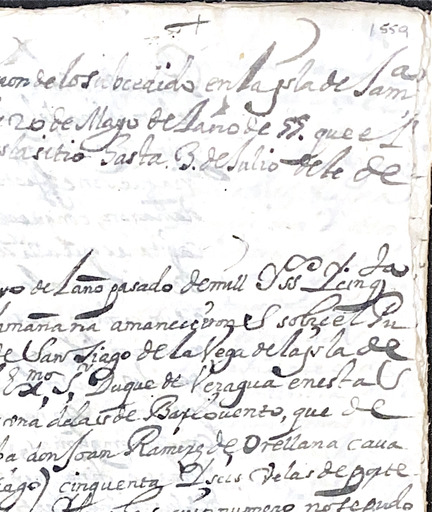 1559
de lo subcedido en la ysla de Jam
20 de Mayo del año de 55. que el
sitio hasta 3. de Julio deste de
del año pasado de mill Yss.º Y cinq.ta
mañana amanecieron sobre el Pu
de Santiago de la Vega de la ysla de
Ex.mo S.r Duque de Veragua en esta
de las de Barlovento, que de
don Joan Ramirez de Orellana cava
ago) cinquenta Y seis velas de porte
numero no se pudo